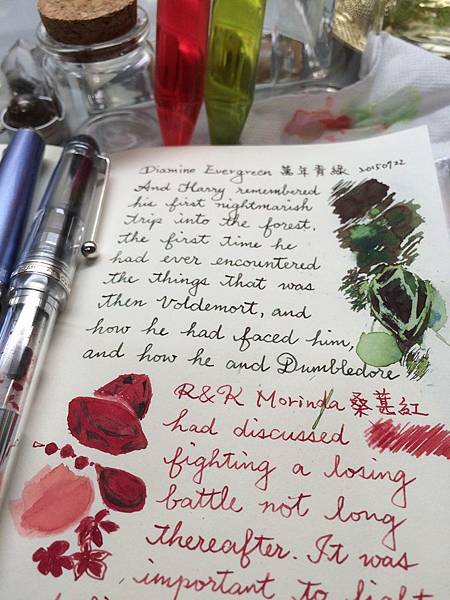 Diamine Evergreen 萬年青綠 20150922
And Harry remembered
his first nightmarish
trip into the forest,
the first time he
had ever encountered
the things that was
then Voldemort, and
how he had faced him,
and how he and Dumbledore
R&K Morinda 桑葚紅
had discussed
fighting a losing
battle not long
thereafter. It was
important to fight